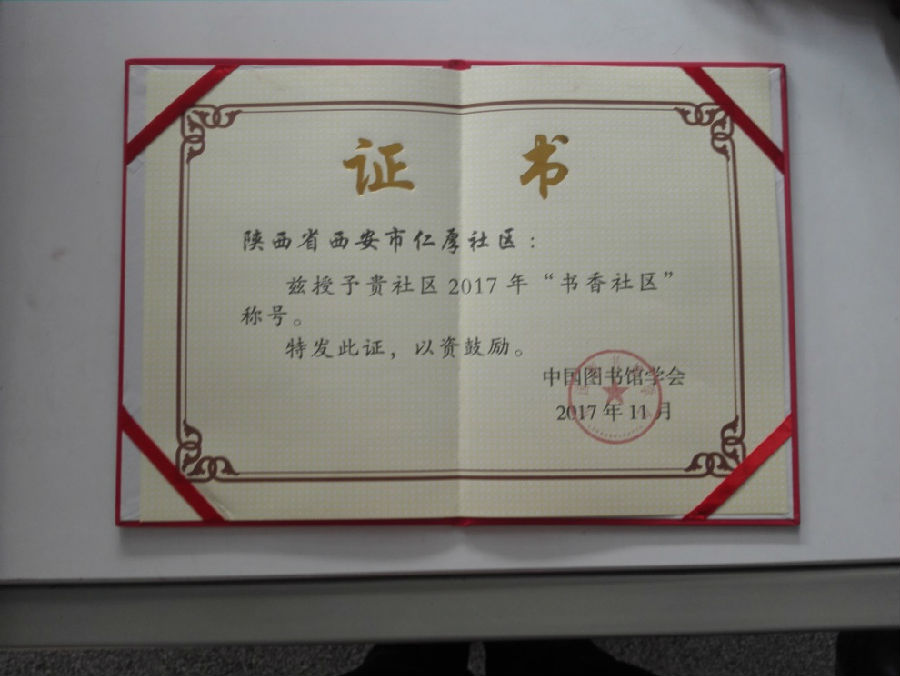 证书
陕西省西安市仁厚社区：
兹授予贵社区2017年“书香社区”
称号。
特发此证，以资鼓励。
中国图书馆学会
2017年11月